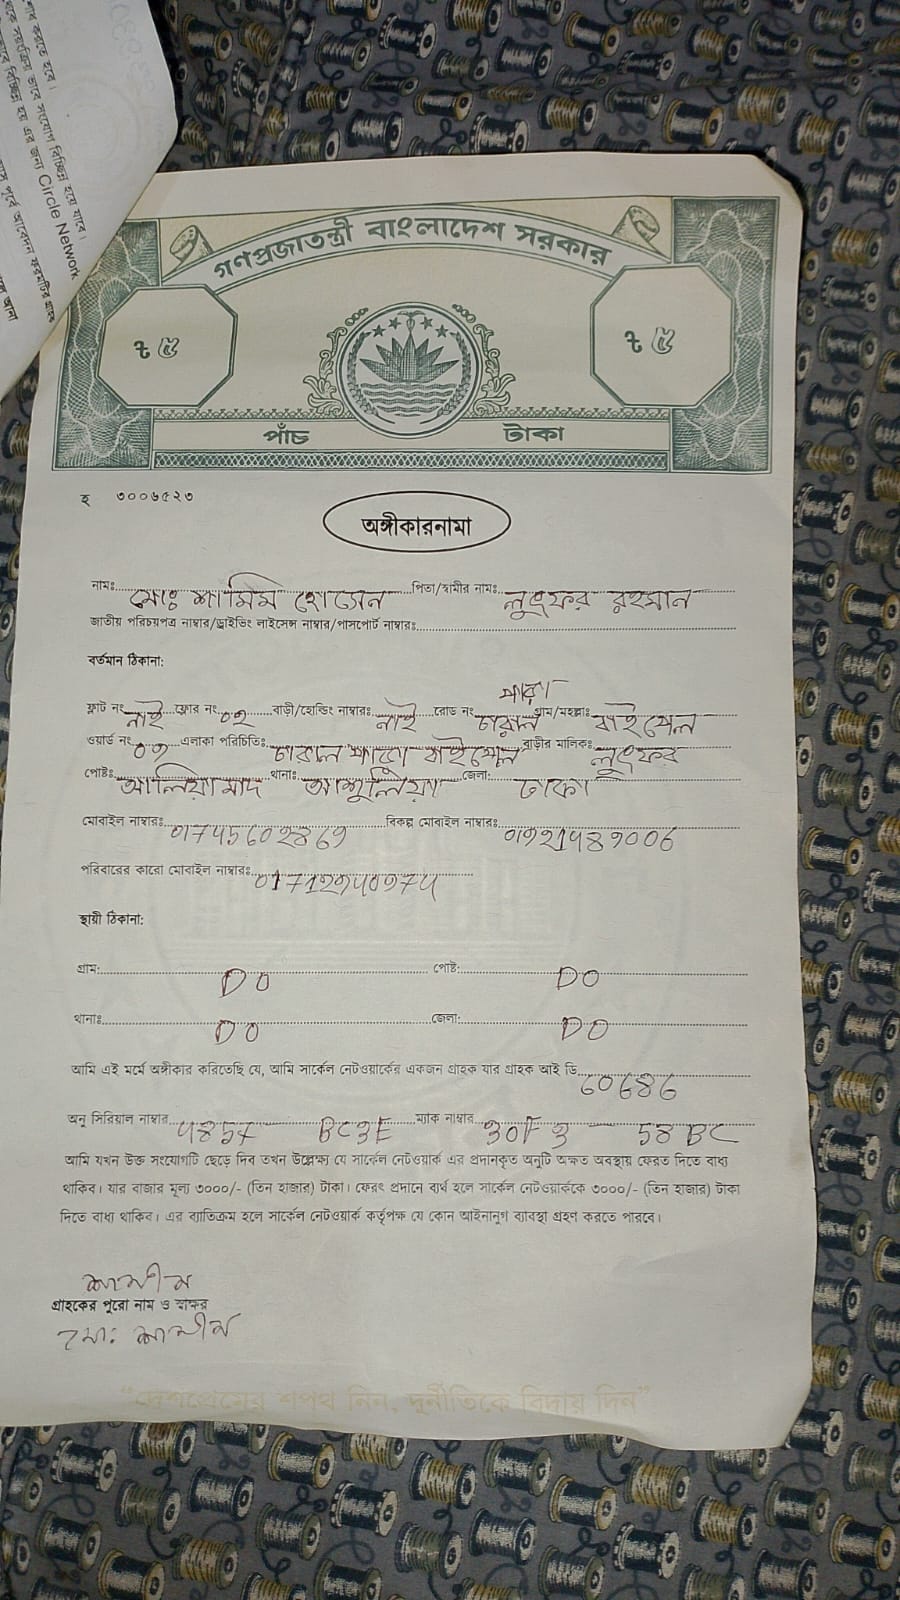 শেষ করতে হবে।
সংযোগ বিচ্ছিন্ন হয়ে যাবে।
এর জন্য Circle Network
গণপ্রজাতন্ত্রী বাংলাদেশ সরকার
৳ ৫ ৳ ৫
পাঁচ টাকা
হ ৩০০৬৫২৩
অঙ্গীকারনামা
নামঃ মোঃ শামিম হোসেন পিতা/স্বামীর নাম: লুৎফর রহমান
জাতীয় পরিচয়পত্র নাম্বার/ড্রাইভিং লাইসেন্স নাম্বার/পাসপোর্ট নাম্বারঃ
বর্তমান ঠিকানা:
পারা
ফ্লাট নং নাই ফ্লোর নং ০২ বাড়ী/হোল্ডিং নাম্বারঃ নাই রোড নং চারাল গ্রাম/মহল্লাঃ বাইপেল
ওয়ার্ড নং ০৭ এলাকা পরিচিতিঃ চারাল পাড়া বাইপেল বাড়ীর মালিকঃ লুৎফর
পোষ্টঃ আলিয়া মাদ থানাঃ আশুলিয়া জেলা: ঢাকা
মোবাইল নাম্বারঃ বিকল্প মোবাইল নাম্বারঃ
পরিবারের কারো মোবাইল নাম্বারঃ
স্থায়ী ঠিকানা:
গ্রাম: DO পোষ্ট: DO
থানাঃ DO জেলা: DO
আমি এই মর্মে অঙ্গীকার করিতেছি যে, আমি সার্কেল নেটওয়ার্কের একজন গ্রাহক যার গ্রাহক আই ডি 60686
অনু সিরিয়াল নাম্বার 485F BC3E ম্যাক নাম্বার 30F3 58 BC
আমি যখন উক্ত সংযোগটি ছেড়ে দিব তখন উল্লেক্ষ্য যে সার্কেল নেটওয়ার্ক এর প্রদানকৃত অনুটি অক্ষত অবস্থায় ফেরত দিতে বাধ্য
থাকিব। যার বাজার মূল্য ৩০০০/- (তিন হাজার) টাকা। ফেরৎ প্রদানে ব্যর্থ হলে সার্কেল নেটওয়ার্ককে ৩০০০/- (তিন হাজার) টাকা
দিতে বাধ্য থাকিব। এর ব্যাতিক্রম হলে সার্কেল নেটওয়ার্ক কর্তৃপক্ষ যে কোন আইনানুগ ব্যাবস্থা গ্রহণ করতে পারবে।
শামীম
গ্রাহকের পুরো নাম ও স্বাক্ষর
মো: শামীম
“দেশপ্রেমের শপথ নিন, দুর্নীতিকে বিদায় দিন”